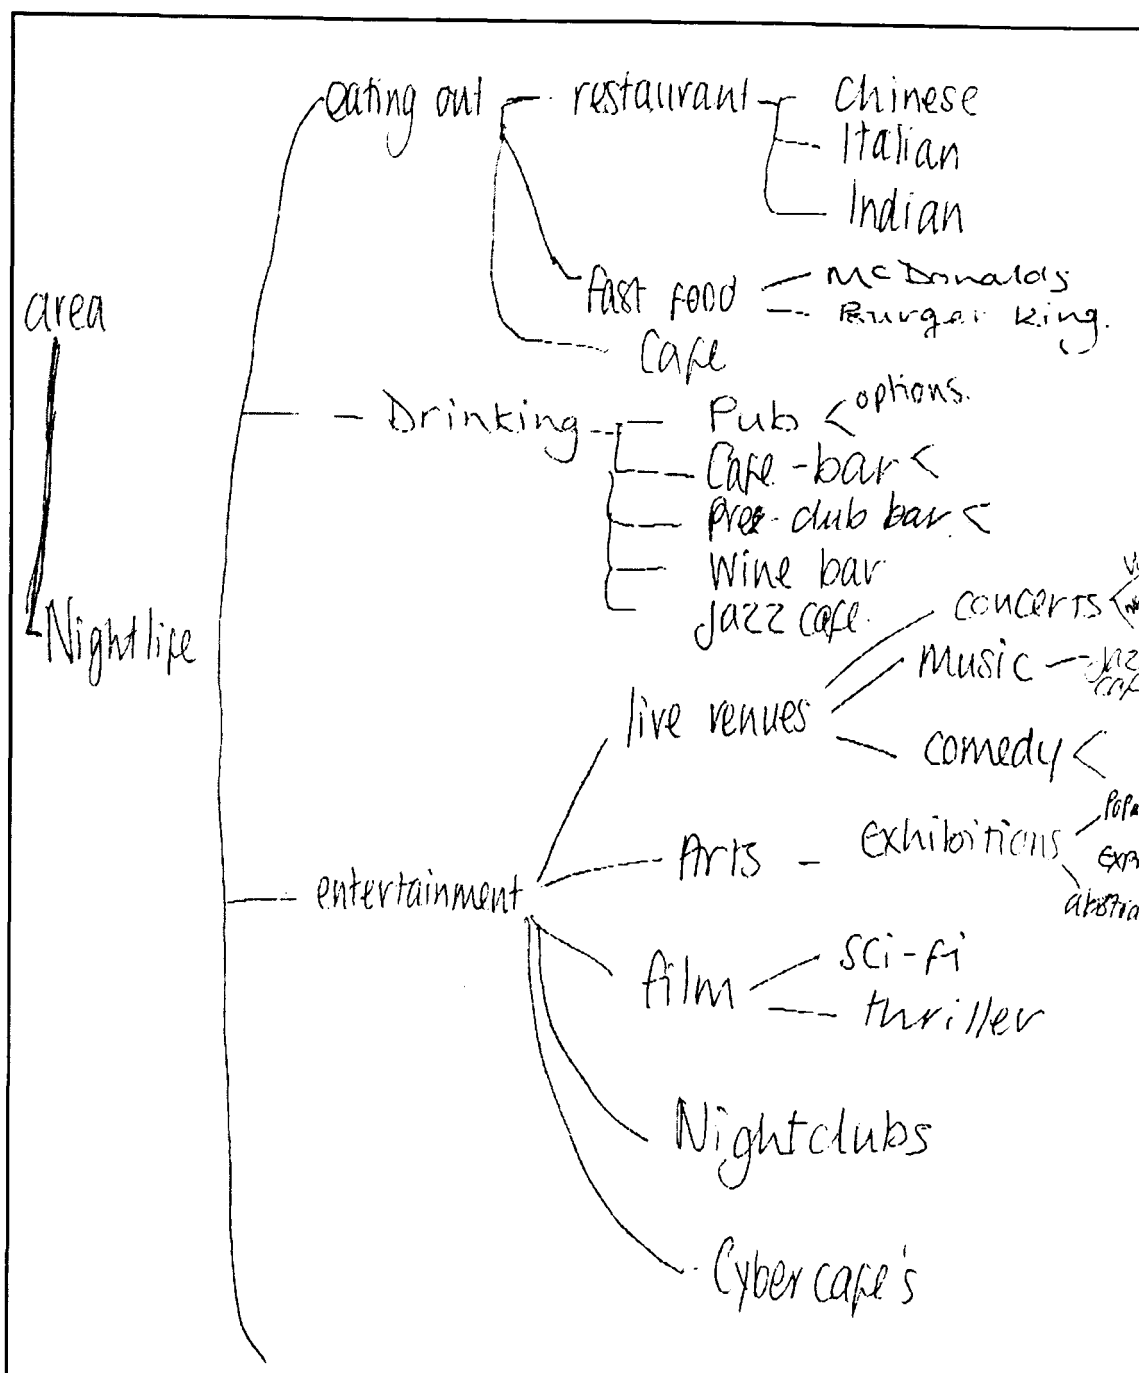 eating out
restaurant
Chinese
Italian
Indian
fast food
McDonalds
Burger King.
Cafe
area
Nightlife
Drinking
Pub
options.
Cafe-bar
Pre-club bar
Wine bar
Jazz cafe.
entertainment
live venues
concerts
music
comedy
Arts
Exhibitions
film
sci-fi
thriller
Nightclubs
Cyber cafe's